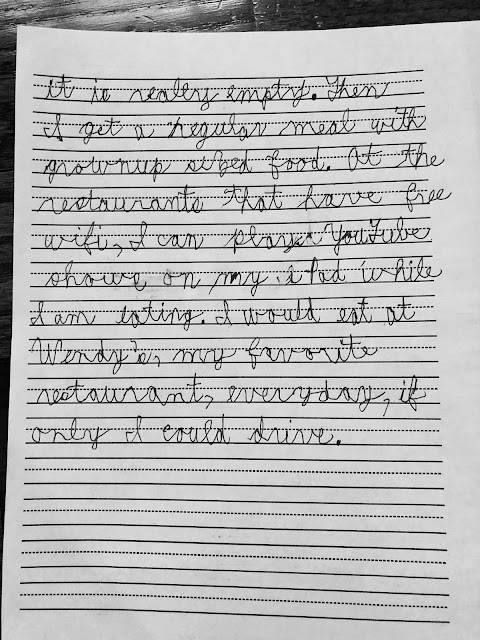 it is really empty. Then
I get a regular meal with
grownup sized food. At the
restaurants that have free
wifi, I can play YouTube
shows on my iPad while
I am eating. I would eat at
Wendy's, my favorite
restaurant, everyday, if
only I could drive.